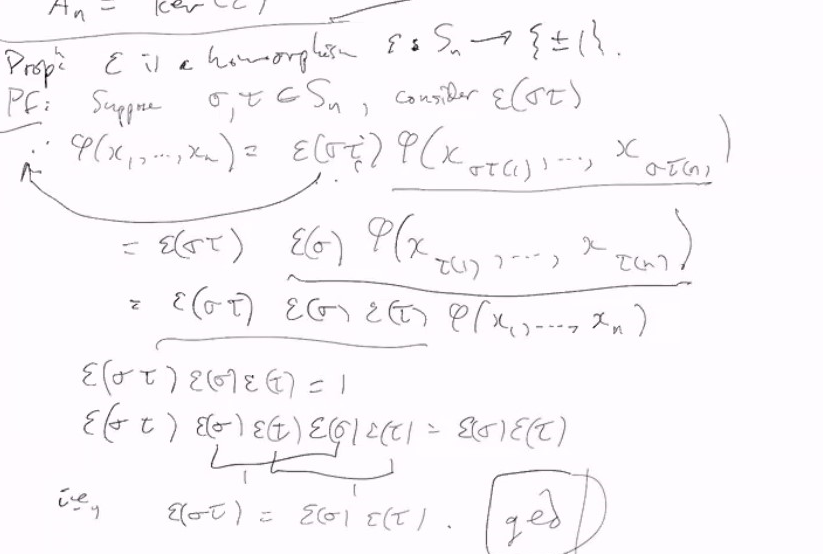 Aₙ = ker(ε)
Propⁿ: ε is a homomorphism ε : Sₙ → {±1}.
Pf: Suppose σ, τ ∈ Sₙ, consider ε(στ)
∴ φ(x₁, ..., xₙ) = ε(στ) φ(x_{στ(1)}, ..., x_{στ(n)})
= ε(στ) ε(σ) φ(x_{τ(1)}, ..., x_{τ(n)})
= ε(στ) ε(σ) ε(τ) φ(x₁, ..., xₙ)
ε(στ) ε(σ) ε(τ) = 1
ε(στ) ε(σ) ε(τ) ε(σ) ε(τ) = ε(σ) ε(τ)
1 1
i.e., ε(στ) = ε(σ) ε(τ). qed